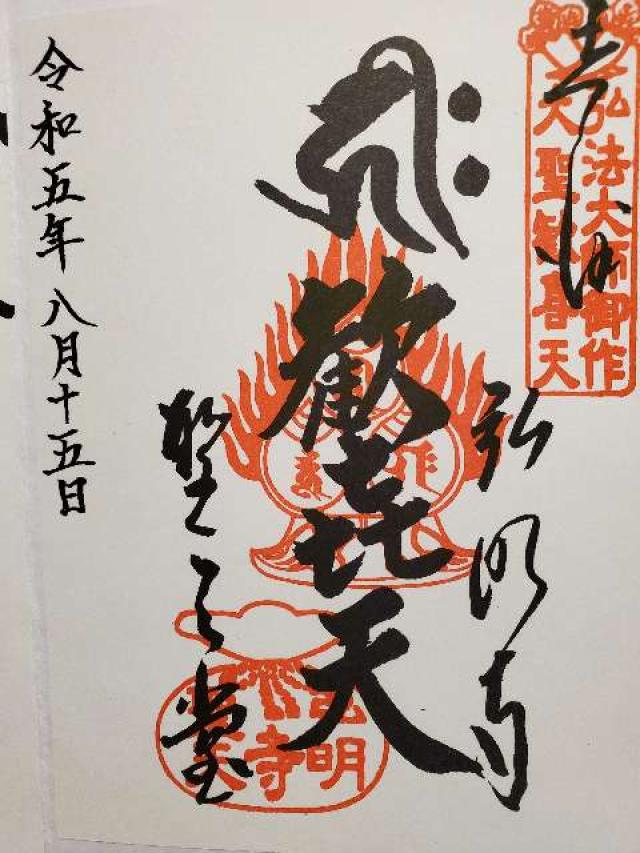 奉拝
弘法大師御作
大聖歓喜天
弘明寺
歓喜天
聖天堂
令和五年八月十五日